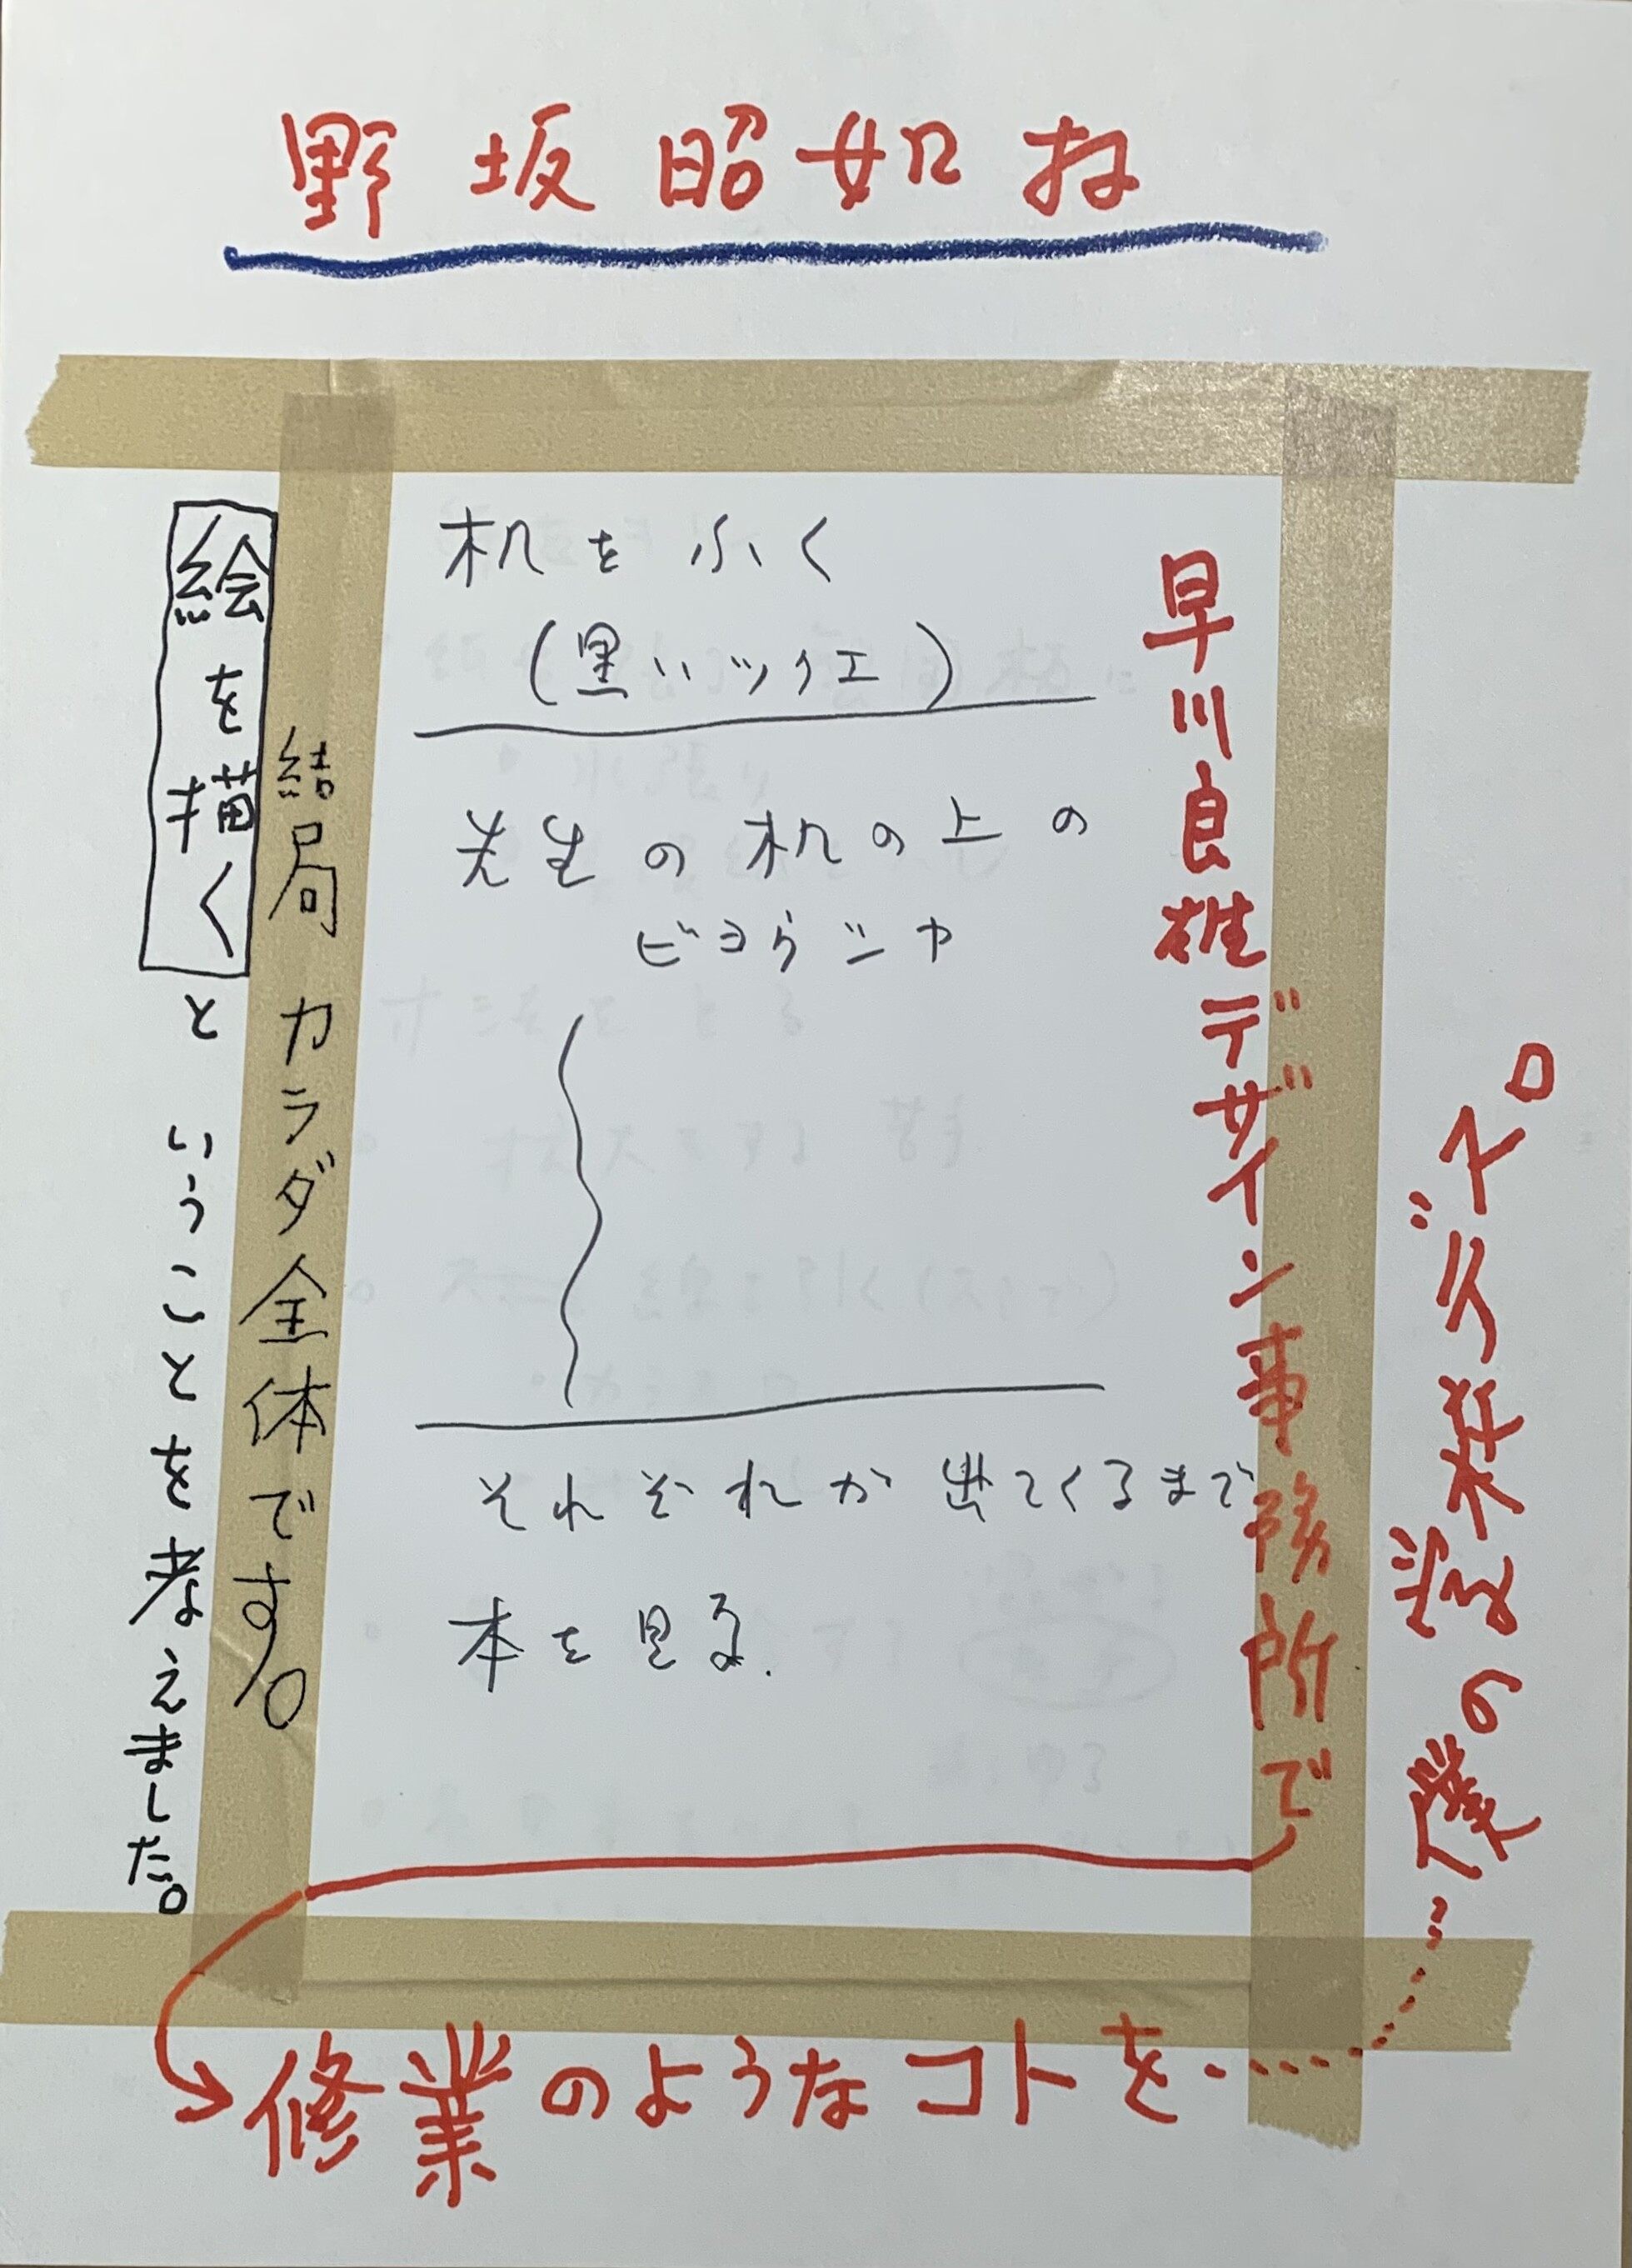 野坂昭如お
早川良雄デザイン事務所で
修業のようなコトを
僕の
机をふく
(黒いツクエ)
先生の机の上の
それぞれが出てくるまで
本を見る.
結局 カラダ全体です。
絵を描く と いうことを考えました。